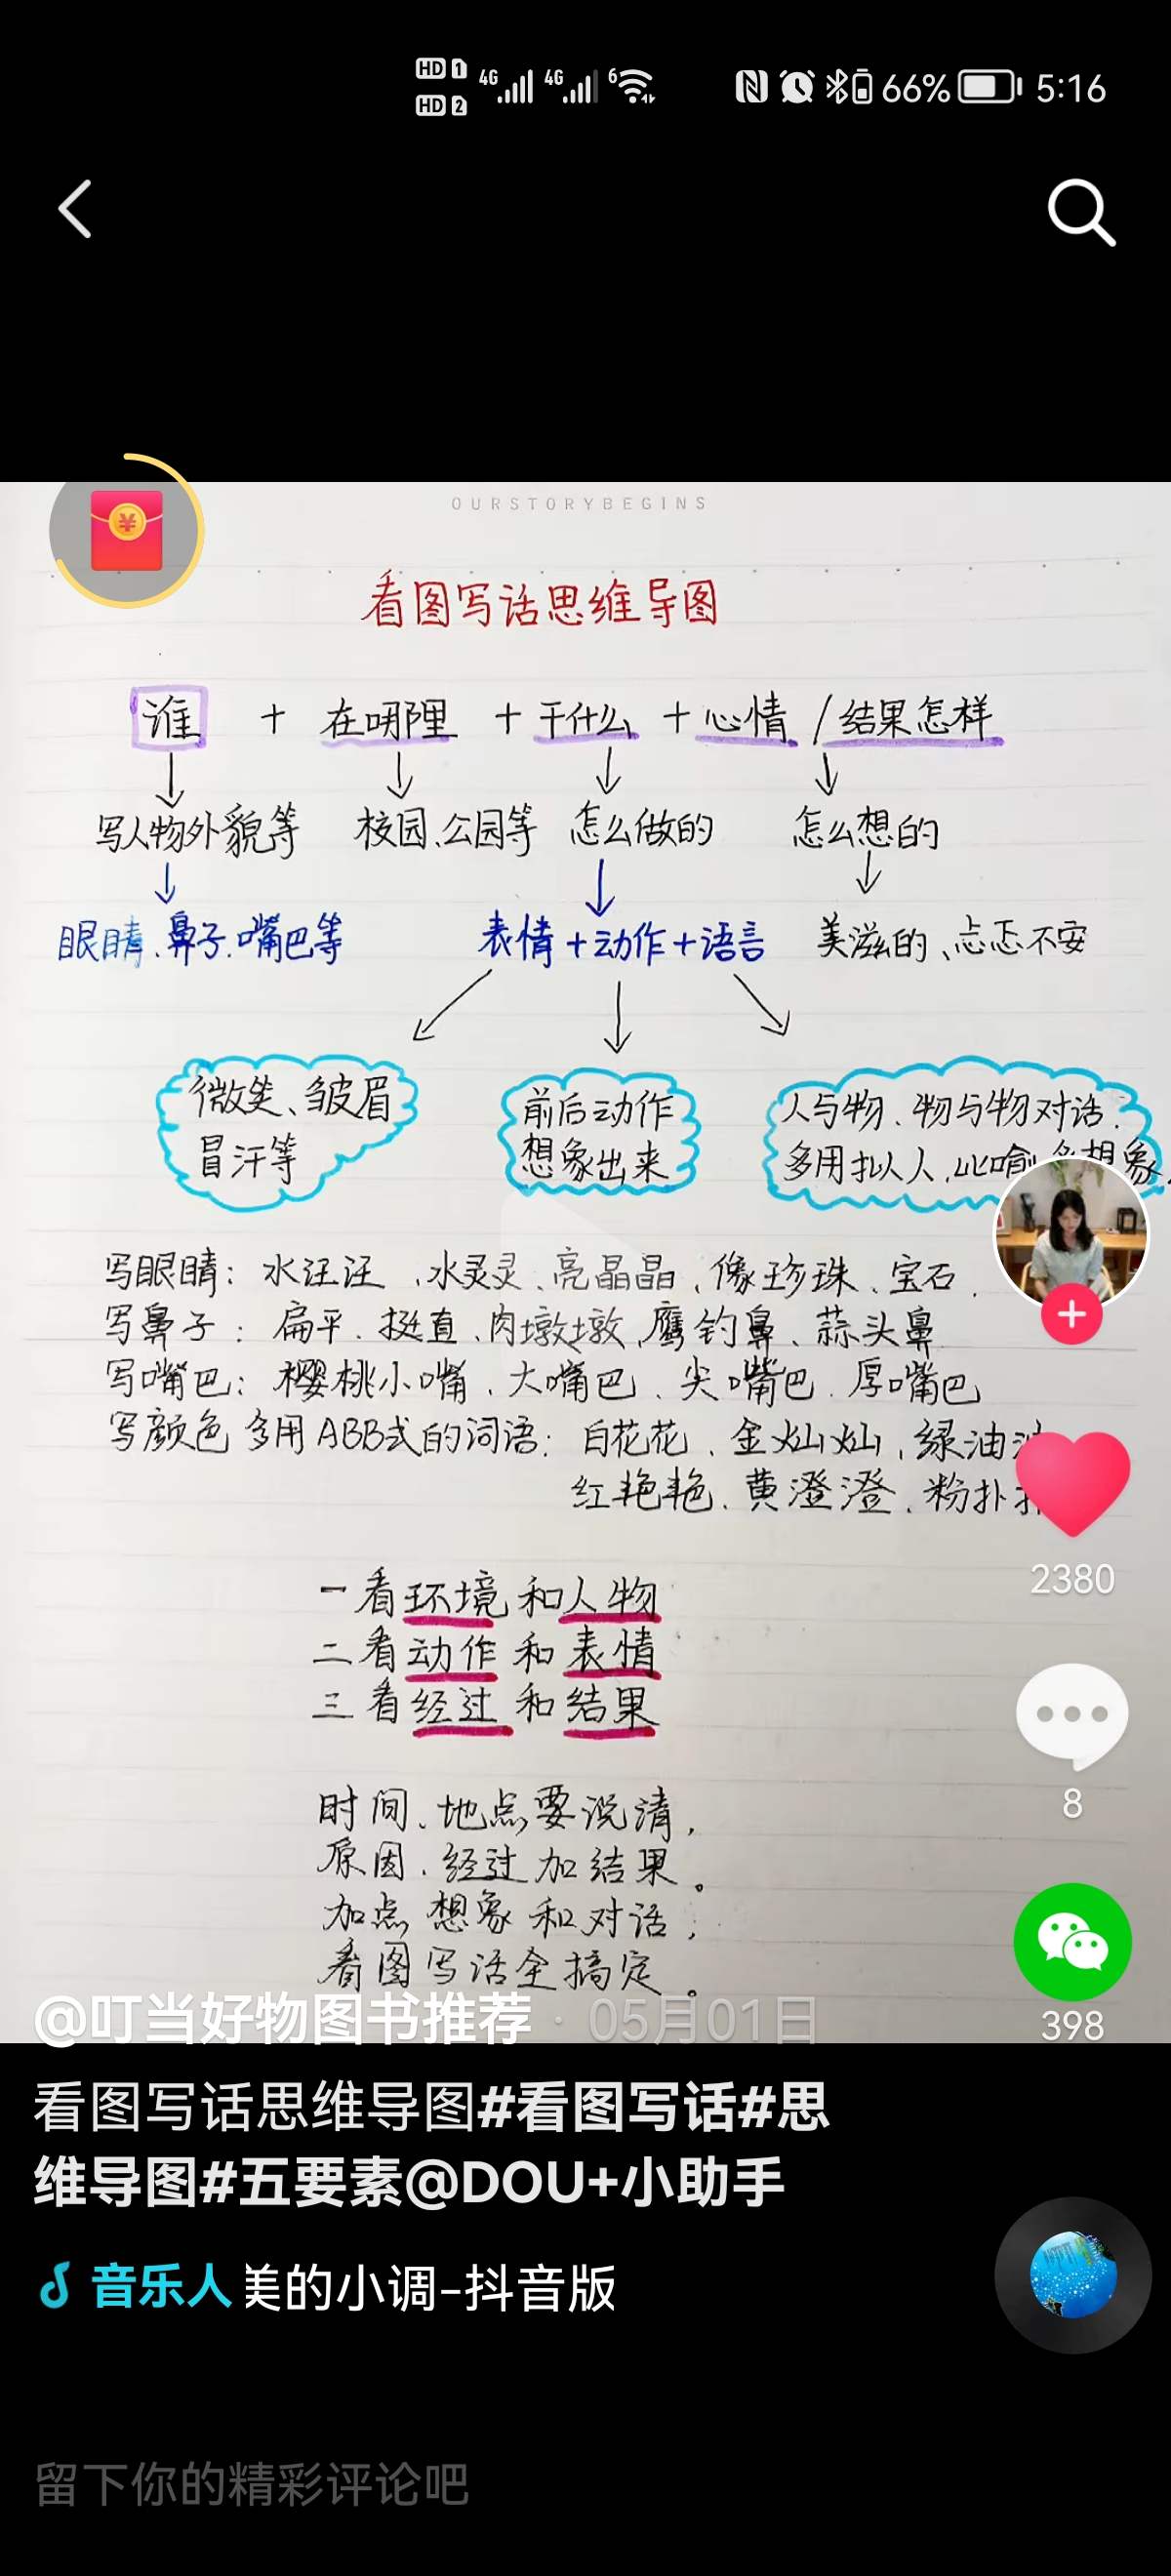 HD 1 4G 4G 6 66% 5:16
HD 2
OURSTORYBEGINS
看图写话思维导图
谁 + 在哪里 + 干什么 + 心情 / 结果怎样
写人物外貌等 校园、公园等 怎么做的 怎么想的
眼睛、鼻子、嘴巴等 表情+动作+语言 美滋的、忐忑不安
微笑、皱眉
冒汗等
前后动作
想象出来
人与物、物与物对话.
多用拟人,比喻 多想象.
写眼睛: 水汪汪、水灵灵、亮晶晶、像珍珠、宝石.
写鼻子: 扁平、挺直、肉墩墩、鹰钓鼻、蒜头鼻
写嘴巴: 樱桃小嘴、大嘴巴、尖嘴巴、厚嘴巴
写颜色多用ABB式的词语: 白花花、金灿灿、绿油
红艳艳、黄澄澄、粉扑
一看环境和人物
二看动作和表情
三看经过和结果
时间、地点要说清,
原因、经过加结果。
加点想象和对话,
看图写话全搞定。
2380
8
398
@叮当好物图书推荐 · 05月01日
看图写话思维导图#看图写话#思
维导图#五要素@DOU+小助手
音乐人 美的小调-抖音版
留下你的精彩评论吧